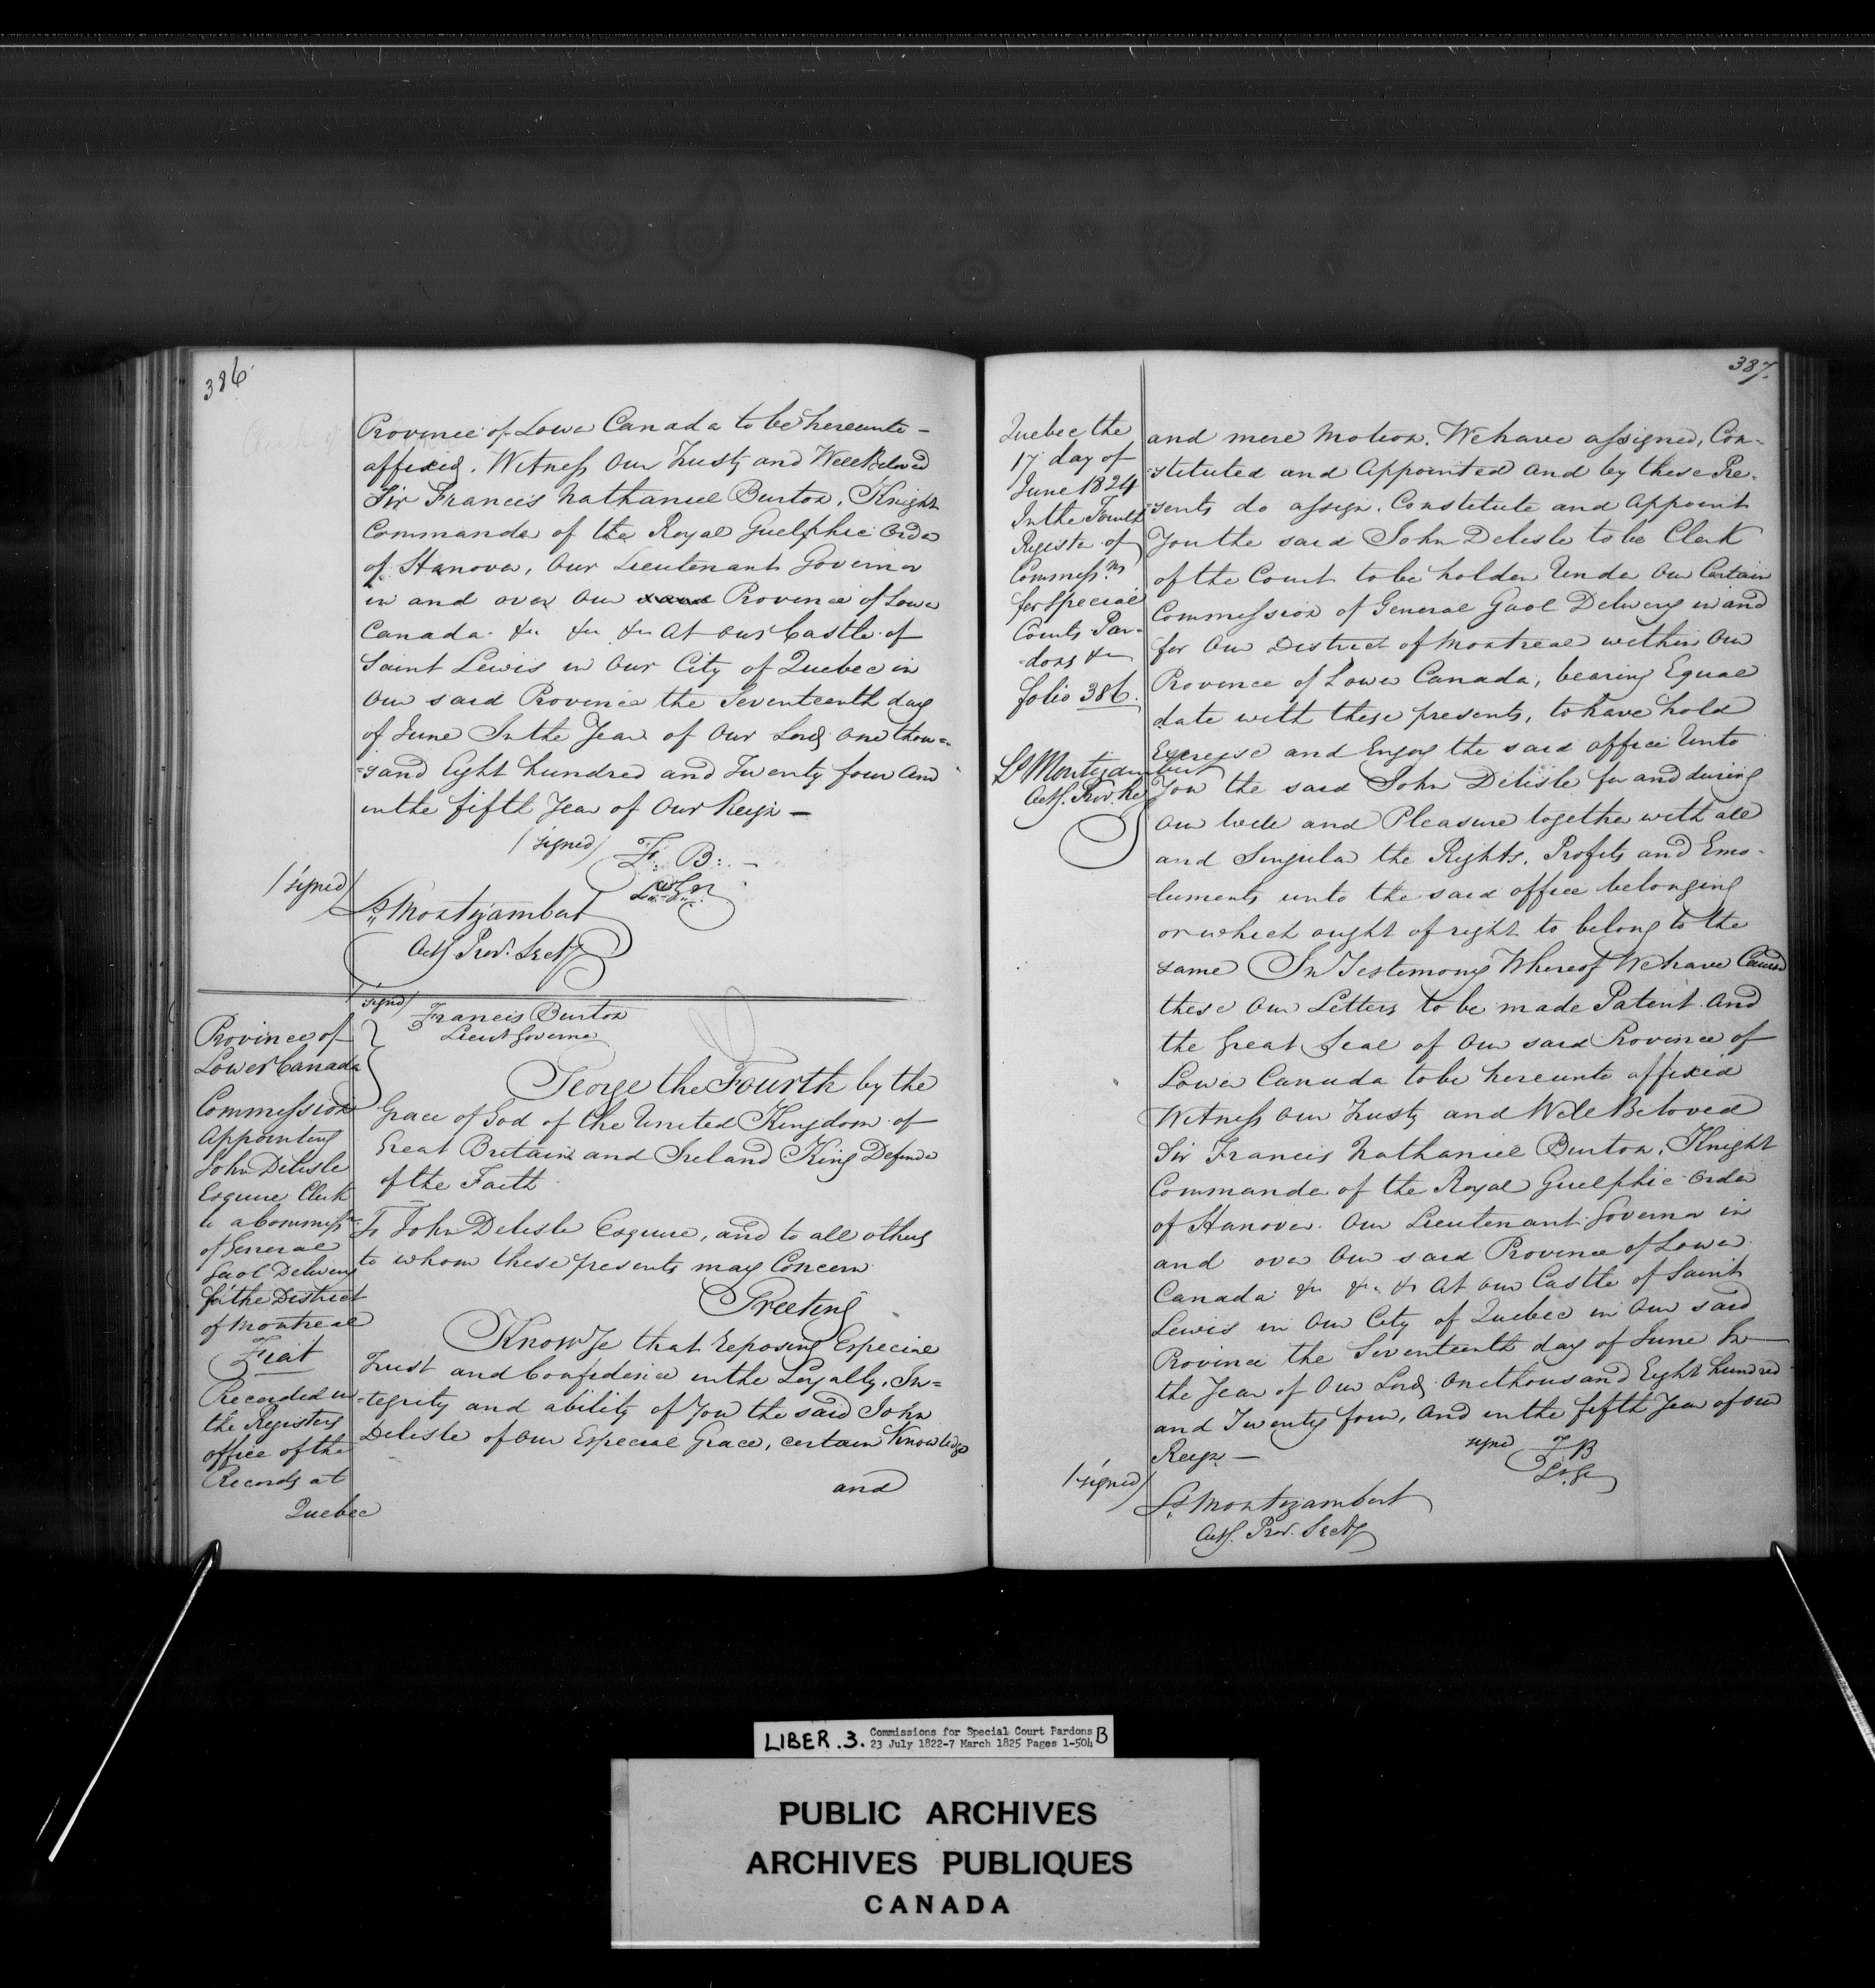 386
Province of Lower Canada to be hereunto-
affixed. Witness Our Trusty and Well Beloved
Sir Francis Nathaniel Burton, Knight
Commander of the Royal Guelphic Order
of Hanover, Our Lieutenant Governor
in and over Our Province of Lower
Canada &c &c &c At our Castle of
Saint Lewis in Our City of Quebec in
Our said Province the Seventeenth day
of June In the Year of Our Lord One thou=
=sand Eight hundred and Twenty four and
in the fifth Year of Our Reign —
(signed) F: B: —
Lt. Gr.
(signed)
Ls Montizambert
Actg Prov. Secty
(signed) Francis Burton
Lieut Governor
Province of
Lower Canada
Commission
Appointing
John Delisle
Esquire Clerk
to a Commissn
of General
Gaol Delivery
for the District
of Montreal
Fiat
Recorded in
the Registers
office of the
Records at
Quebec
George the Fourth by the
Grace of God of the United Kingdom of
Great Britain and Ireland King Defender
of the Faith
To John Delisle Esquire, and to all others
to whom these presents may Concern
Greeting
Know Ye that reposing Especial
Trust and Confidence in the Loyalty, In=
-tegrity and ability of You the said John
Delisle of Our Especial Grace, certain Knowledge
and
387.
Quebec the
17 day of
June 1824
In the Fourth
Register of
Commissns
for Special
Courts Par-
-dons &c
folio 386.
Ls Montizambert
Actg. Prov. Se
and mere Motion. We have assigned, Con-
-stituted and Appointed and by these Pre-
-sents do assign, Constitute and Appoint
You the said John Delisle to be Clerk
of the Court to be holden Under Our Certain
Commission of General Gaol Delivery in and
for Our District of Montreal within Our
Province of Lower Canada, bearing Equal
date with these presents, to have hold
Exercise and Enjoy the said office Unto
You the said John Delisle for and during
Our Will and Pleasure together with all
and Singular the Rights, Profits and Emo-
-luments unto the said office belonging
or which ought of right to belong to the
same In Testimony Whereof We have Caused
these Our Letters to be made Patent And
the Great Seal of Our said Province of
Lower Canada to be hereunto affixed
Witness Our Trusty and Well Beloved
Sir Francis Nathaniel Burton, Knight
Commander of the Royal Guelphic Order
of Hanover. Our Lieutenant Governor in
and over Our said Province of Lower
Canada &c &c &c At our Castle of Saint
Lewis in Our City of Quebec in Our said
Province the Seventeenth day of June In
the Year of Our Lord One thousand Eight hundred
and Twenty four, And in the fifth Year of our
Reign —
signed F B
Lt. Gr
(signed)
Ls Montizambert
Actg. Prov. Secty
LIBER .3. Commissions for Special Court Pardons B
23 July 1822-7 March 1825 Pages 1-504
PUBLIC ARCHIVES
ARCHIVES PUBLIQUES
CANADA